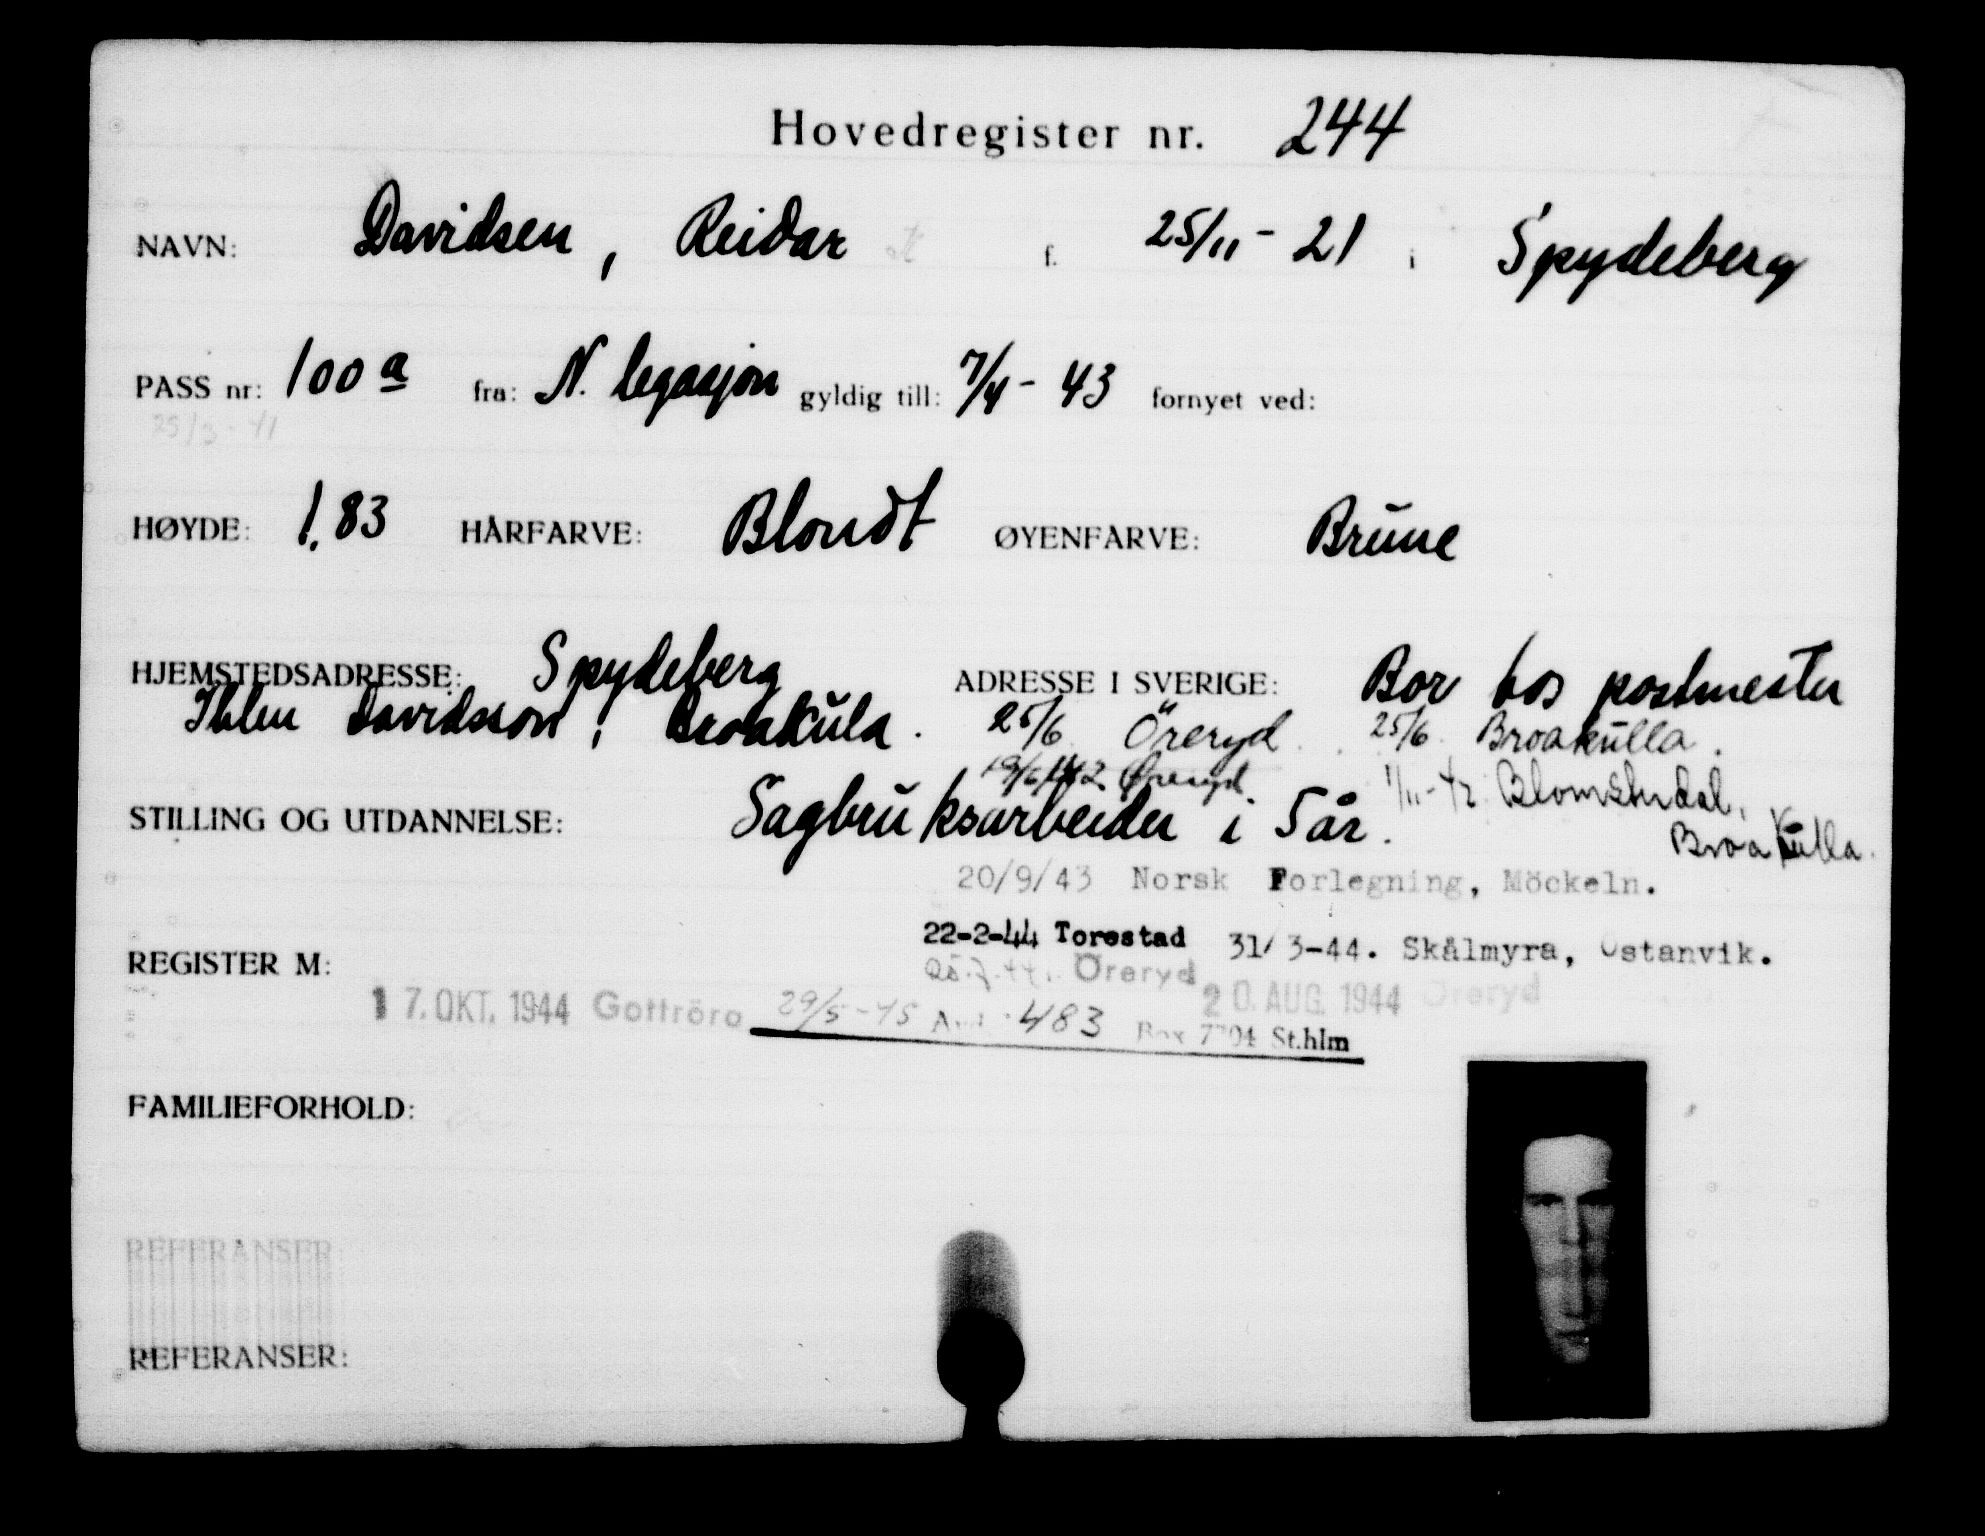 Hovedregister nr. 244
NAVN: Davidsen, Reidar f. 25/11 - 21 i Spydeberg
PASS nr: 100 a fra: N. legasjon gyldig till: 7/4 - 43 fornyet ved:
25/3 - 41
HØYDE: 1.83 HÅRFARVE: Blondt ØYENFARVE: Brune
HJEMSTEDSADRESSE: Spydeberg ADRESSE I SVERIGE: Bor hos postmester
Davidsson, Broakula. 25/6 Öreryd 25/6 Broakulla.
Öreryd 1/11-42 Blomsterdal,
STILLING OG UTDANNELSE: Sagbruksarbeider i 5 år. Broakulla.
20/9/43 Norsk Forlegning, Möckeln.
22-2-44 Torestad 31/3-44. Skålmyra, Östanvik.
REGISTER M: Öreryd
17. OKT. 1944 Gottröra 29/5-45 483 20. AUG. 1944 Öreryd
Box St.hlm
FAMILIEFORHOLD:
REFERANSER
REFERANSER: